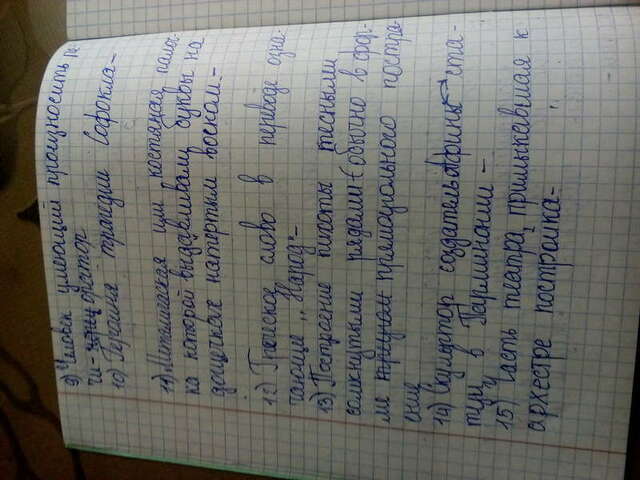 9) Человек умеющий произносить ре-
чи- оратор
10) Героиня трагедии Софокла-
11) Металическая или костяная палоч-
ка которой выдавливали буквы на
дощечке натёртым воском-
12) Греческое слово в переводе озна-
чающие "Народ"-
13) Построение пехоты тесными
сомкнутыми рядами (обычно в фор-
ме прямоугольного постро-
ение
14) Скульптор создатель Афины ста-
туи в Парфиноми-
15) Часть театра, примыкевшая к
орхестре постройка-